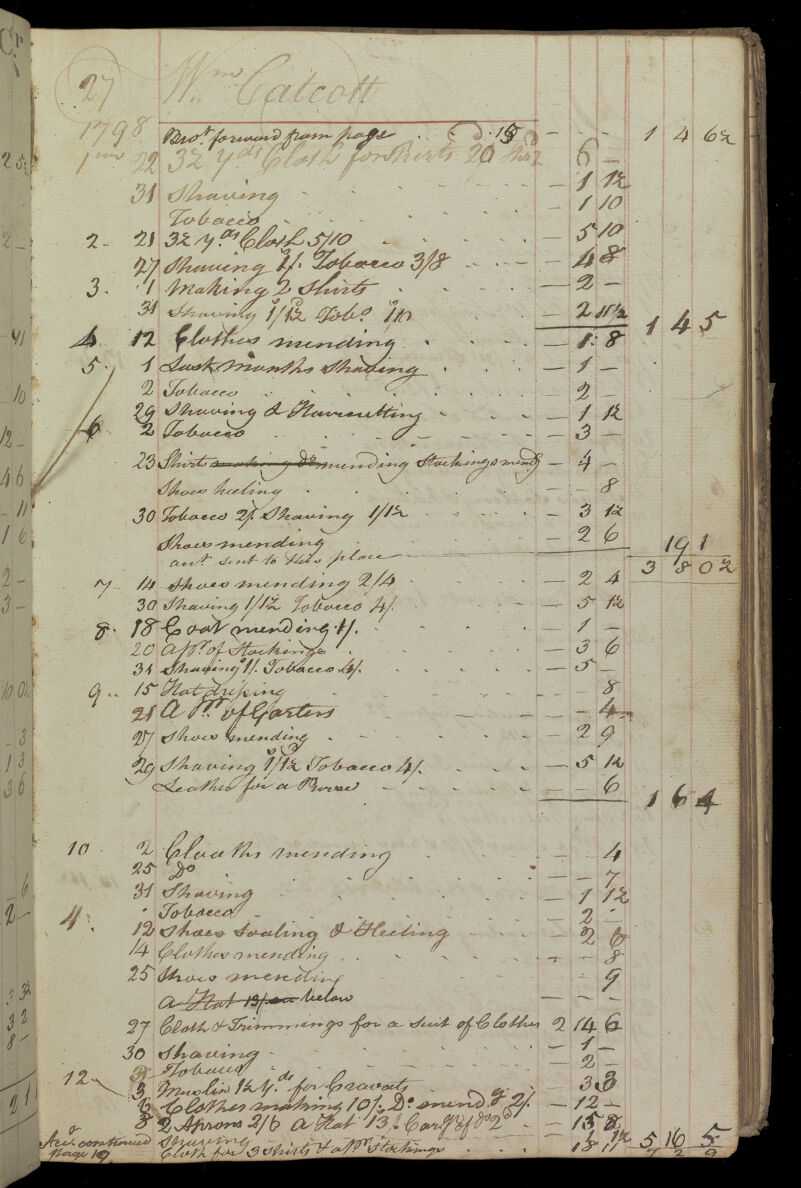 27 Wm Catcott
1798 Brot forward from page 15 - - - 1 4 6½
1 mo 22 3½ yds Cloth for Shirts 20 6 -
31 Shaving - 1 1½
Tobacco - 1 10
2 - 21 3½ yds Cloth 5/10 - 5 10
27 Shaving 1/. Tobacco 3/8 - 4 8
3. 1 Making 2 Shirts - 2 -
31 Shaving 1/1½ Tobo 1/10 - 2 11½ 1 4 5
4. 12 Clothes mending - 1 8
5. 1 Last Months Shaving - 1 -
2 Tobacco - 2 -
29 Shaving & Haircutting - 1 1½
6 2 Tobacco - 3 -
23 Shirts making Do mending Stockings mendg - 4 -
Shoes heeling - 8
30 Tobacco 2/. Shaving 1/1½ - 3 1½
Shoes mending - 2 6 19 1
acct sent to this place 3 8 0½
7 14 Shoes mending 2/4 - 2 4
30 Shaving 1/1½ Tobacco 4/. - 5 1½
8. 18 Coat mending 1/. - 1 -
20 A pr of Stockings - 3 6
31 Shaving 1/. Tobacco 4/. - 5 -
9.. 15 Hat dressing - - 8
21 A Pr of Garters - - 4
27 Shoes mending - 2 9
29 Shaving 1/1½ Tobacco 4/. - 5 1½
Leather for a - - 6 1 6 4
10 2 Cloaths mending - - 4
25 Do - - 7
31 Shaving - 1 1½
Tobacco - 2 -
11. 12 Shoes Soaling & Heeling - 2 6
14 Clothes mending - - 8
25 Shoes mending 9
A Hat 13/ below - - -
27 Cloth & Trimmings for a Suit of Clothes 2 14 6
30 Shaving - 1 -
Tobacco - 2 -
12 3 Muslin 1½ yds for Cravats - 3 3
6 Clothes making 10/. Do mendg 2/. - 12 -
8 2 Aprons 2/6 A Hat 13/. Carge of do 2d - 15 8
Acct continued Shaving - 1 1½ 5 16 5
page 19 Cloth for 3 Shirts & a pr Stockings - 18 7 2 9